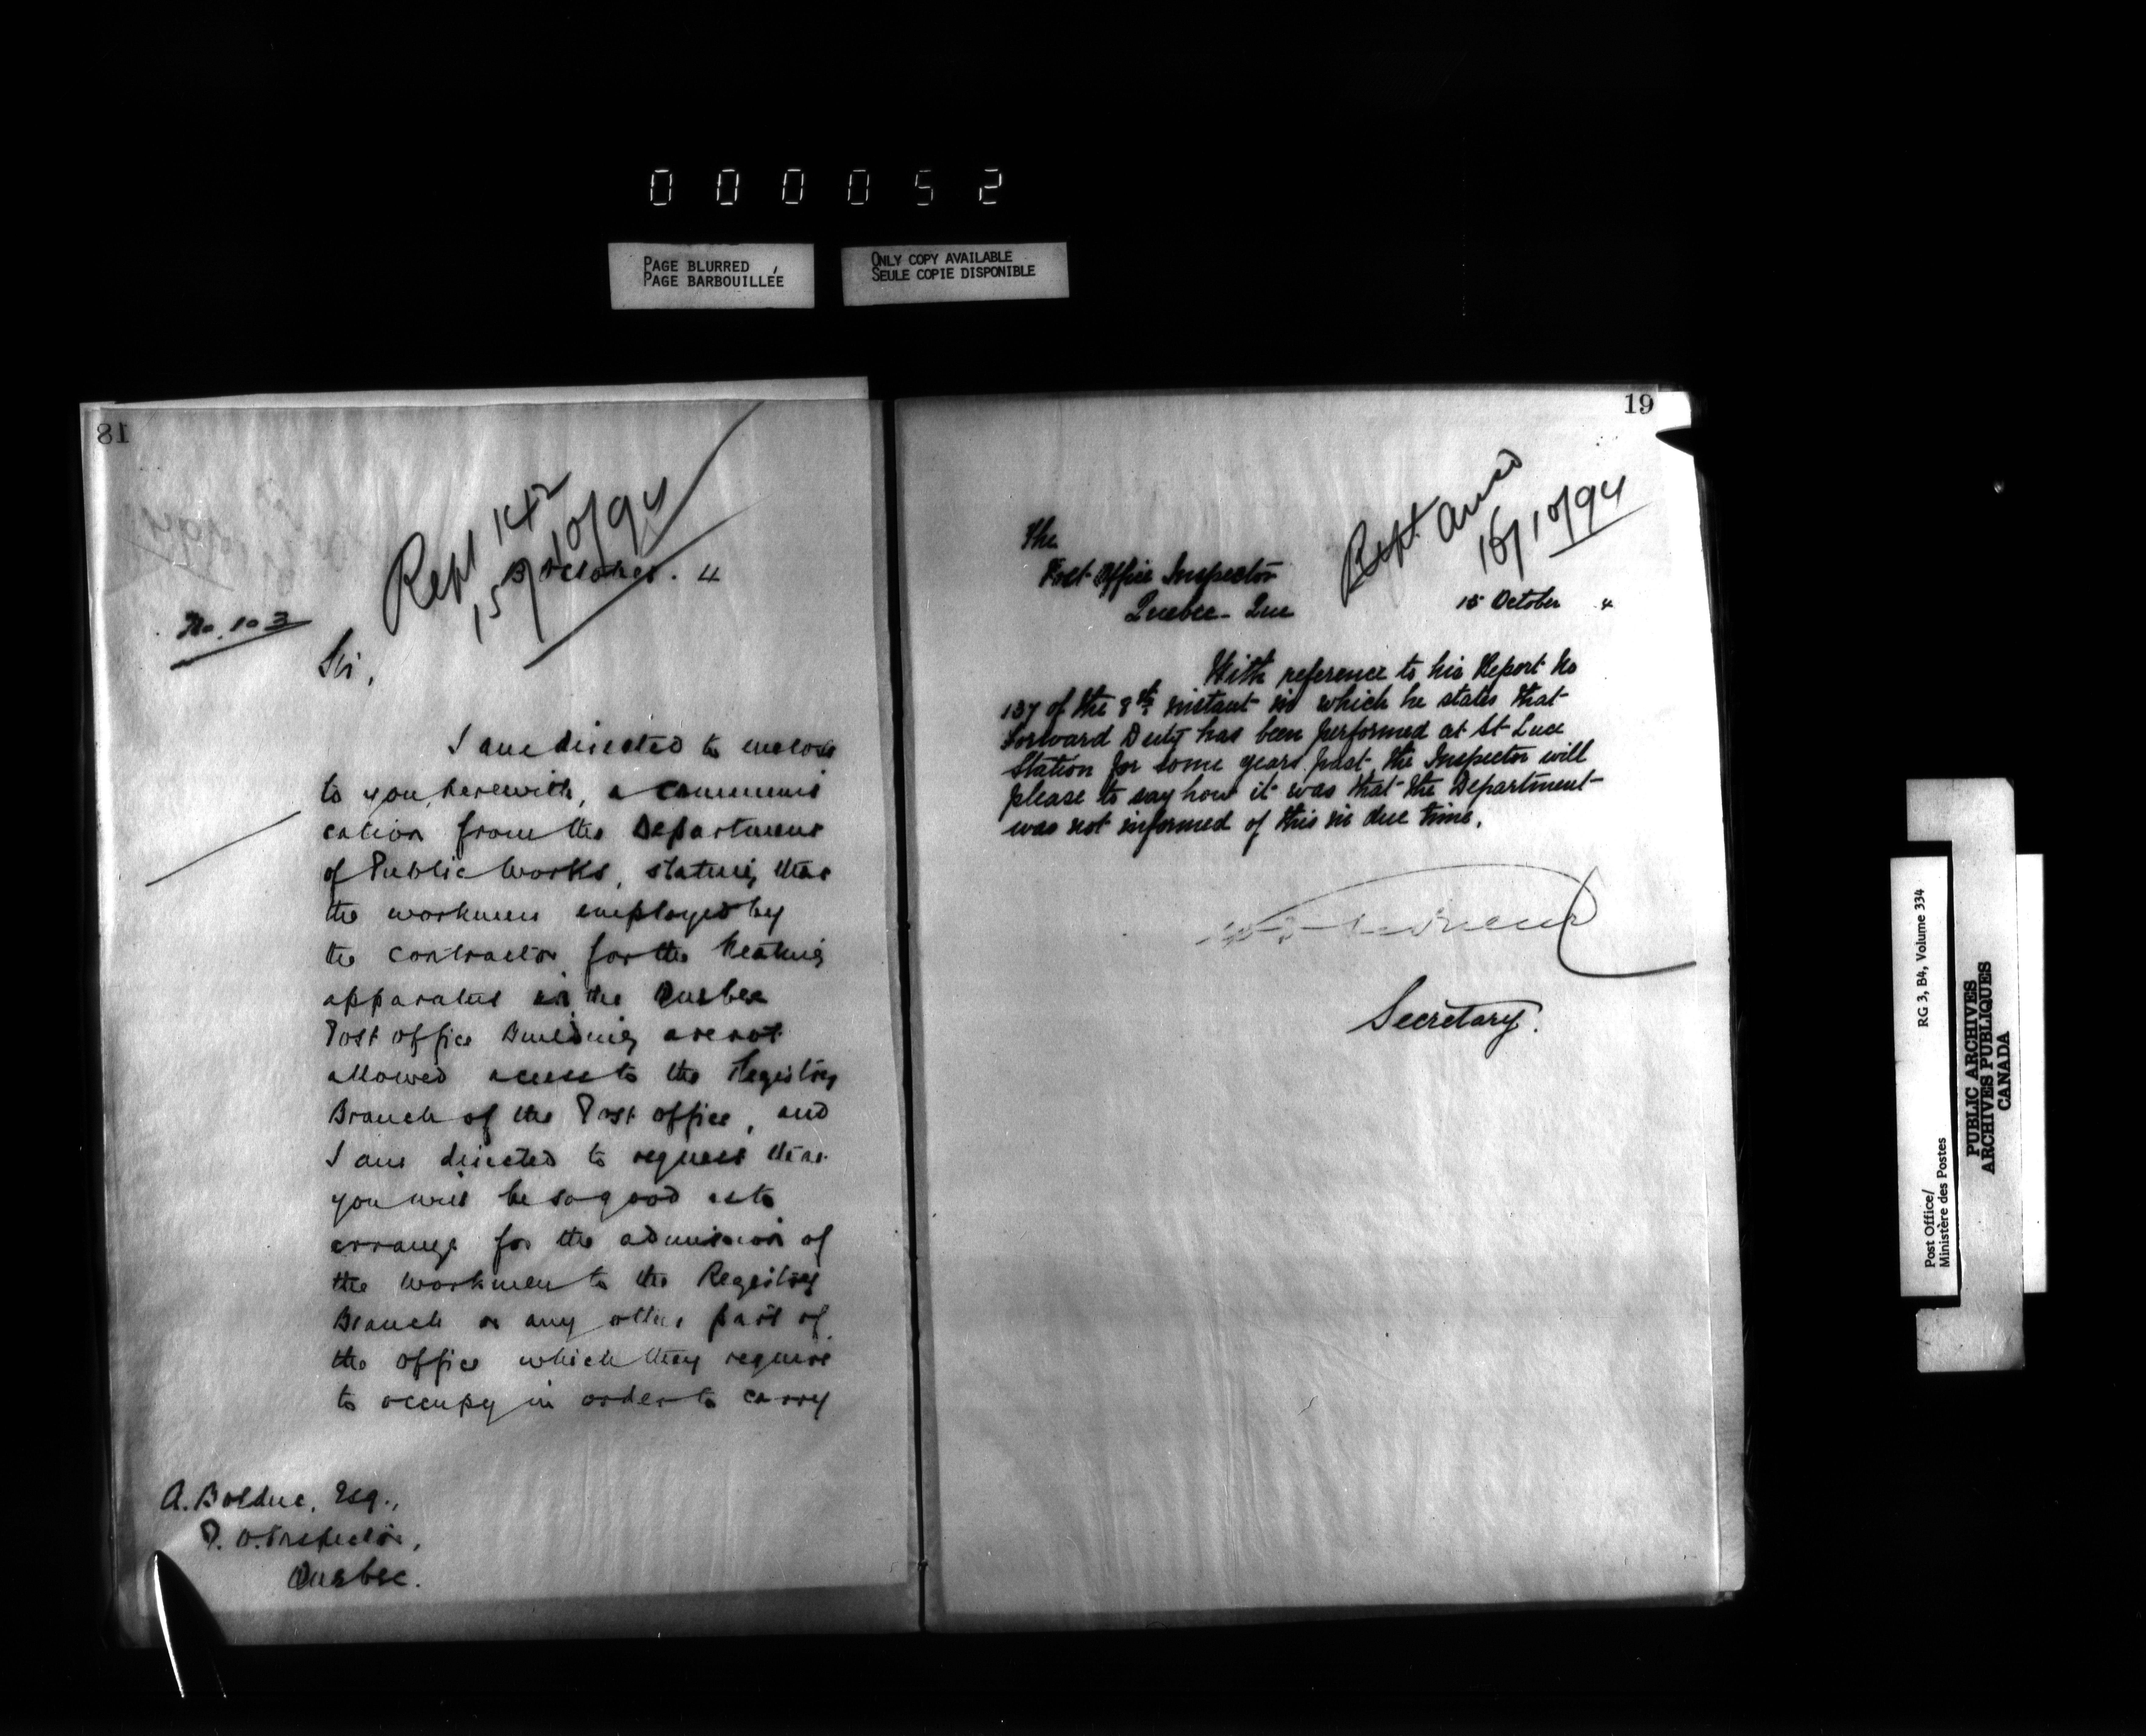 000052
PAGE BLURRED
PAGE BARBOUILLÉE
ONLY COPY AVAILABLE
SEULE COPIE DISPONIBLE
18
Rept 142
15/10/94
October. 4
No. 103
Sir,
I am directed to enclose
to you, herewith, a communi
cation from the Department
of Public Works, stating that
the workmen employed by
the contractor for the heating
apparatus in the Quebec
Post office Building are not
allowed access to the Registry
Branch of the Post office, and
I am directed to request that
you will be so good as to
arrange for the admission of
the workmen to the Registry
Branch or any other part of
the office which they require
to occupy in order to carry
A. Bolduc, Esq.,
P. O. Inspector,
Quebec.
19
Rept.
16/10/94
The
Post Office Inspector
Quebec - Que
15 October 4
With reference to his Report No
137 of the 8th instant in which he states that
Forward Duty has been performed at St Luce
Station for some years past, the Inspector will
please to say how it was that the Department
was not informed of this in due time.
Secretary.
Post Office/
Ministère des Postes
RG 3, B4, Volume 334
PUBLIC ARCHIVES
ARCHIVES PUBLIQUES
CANADA